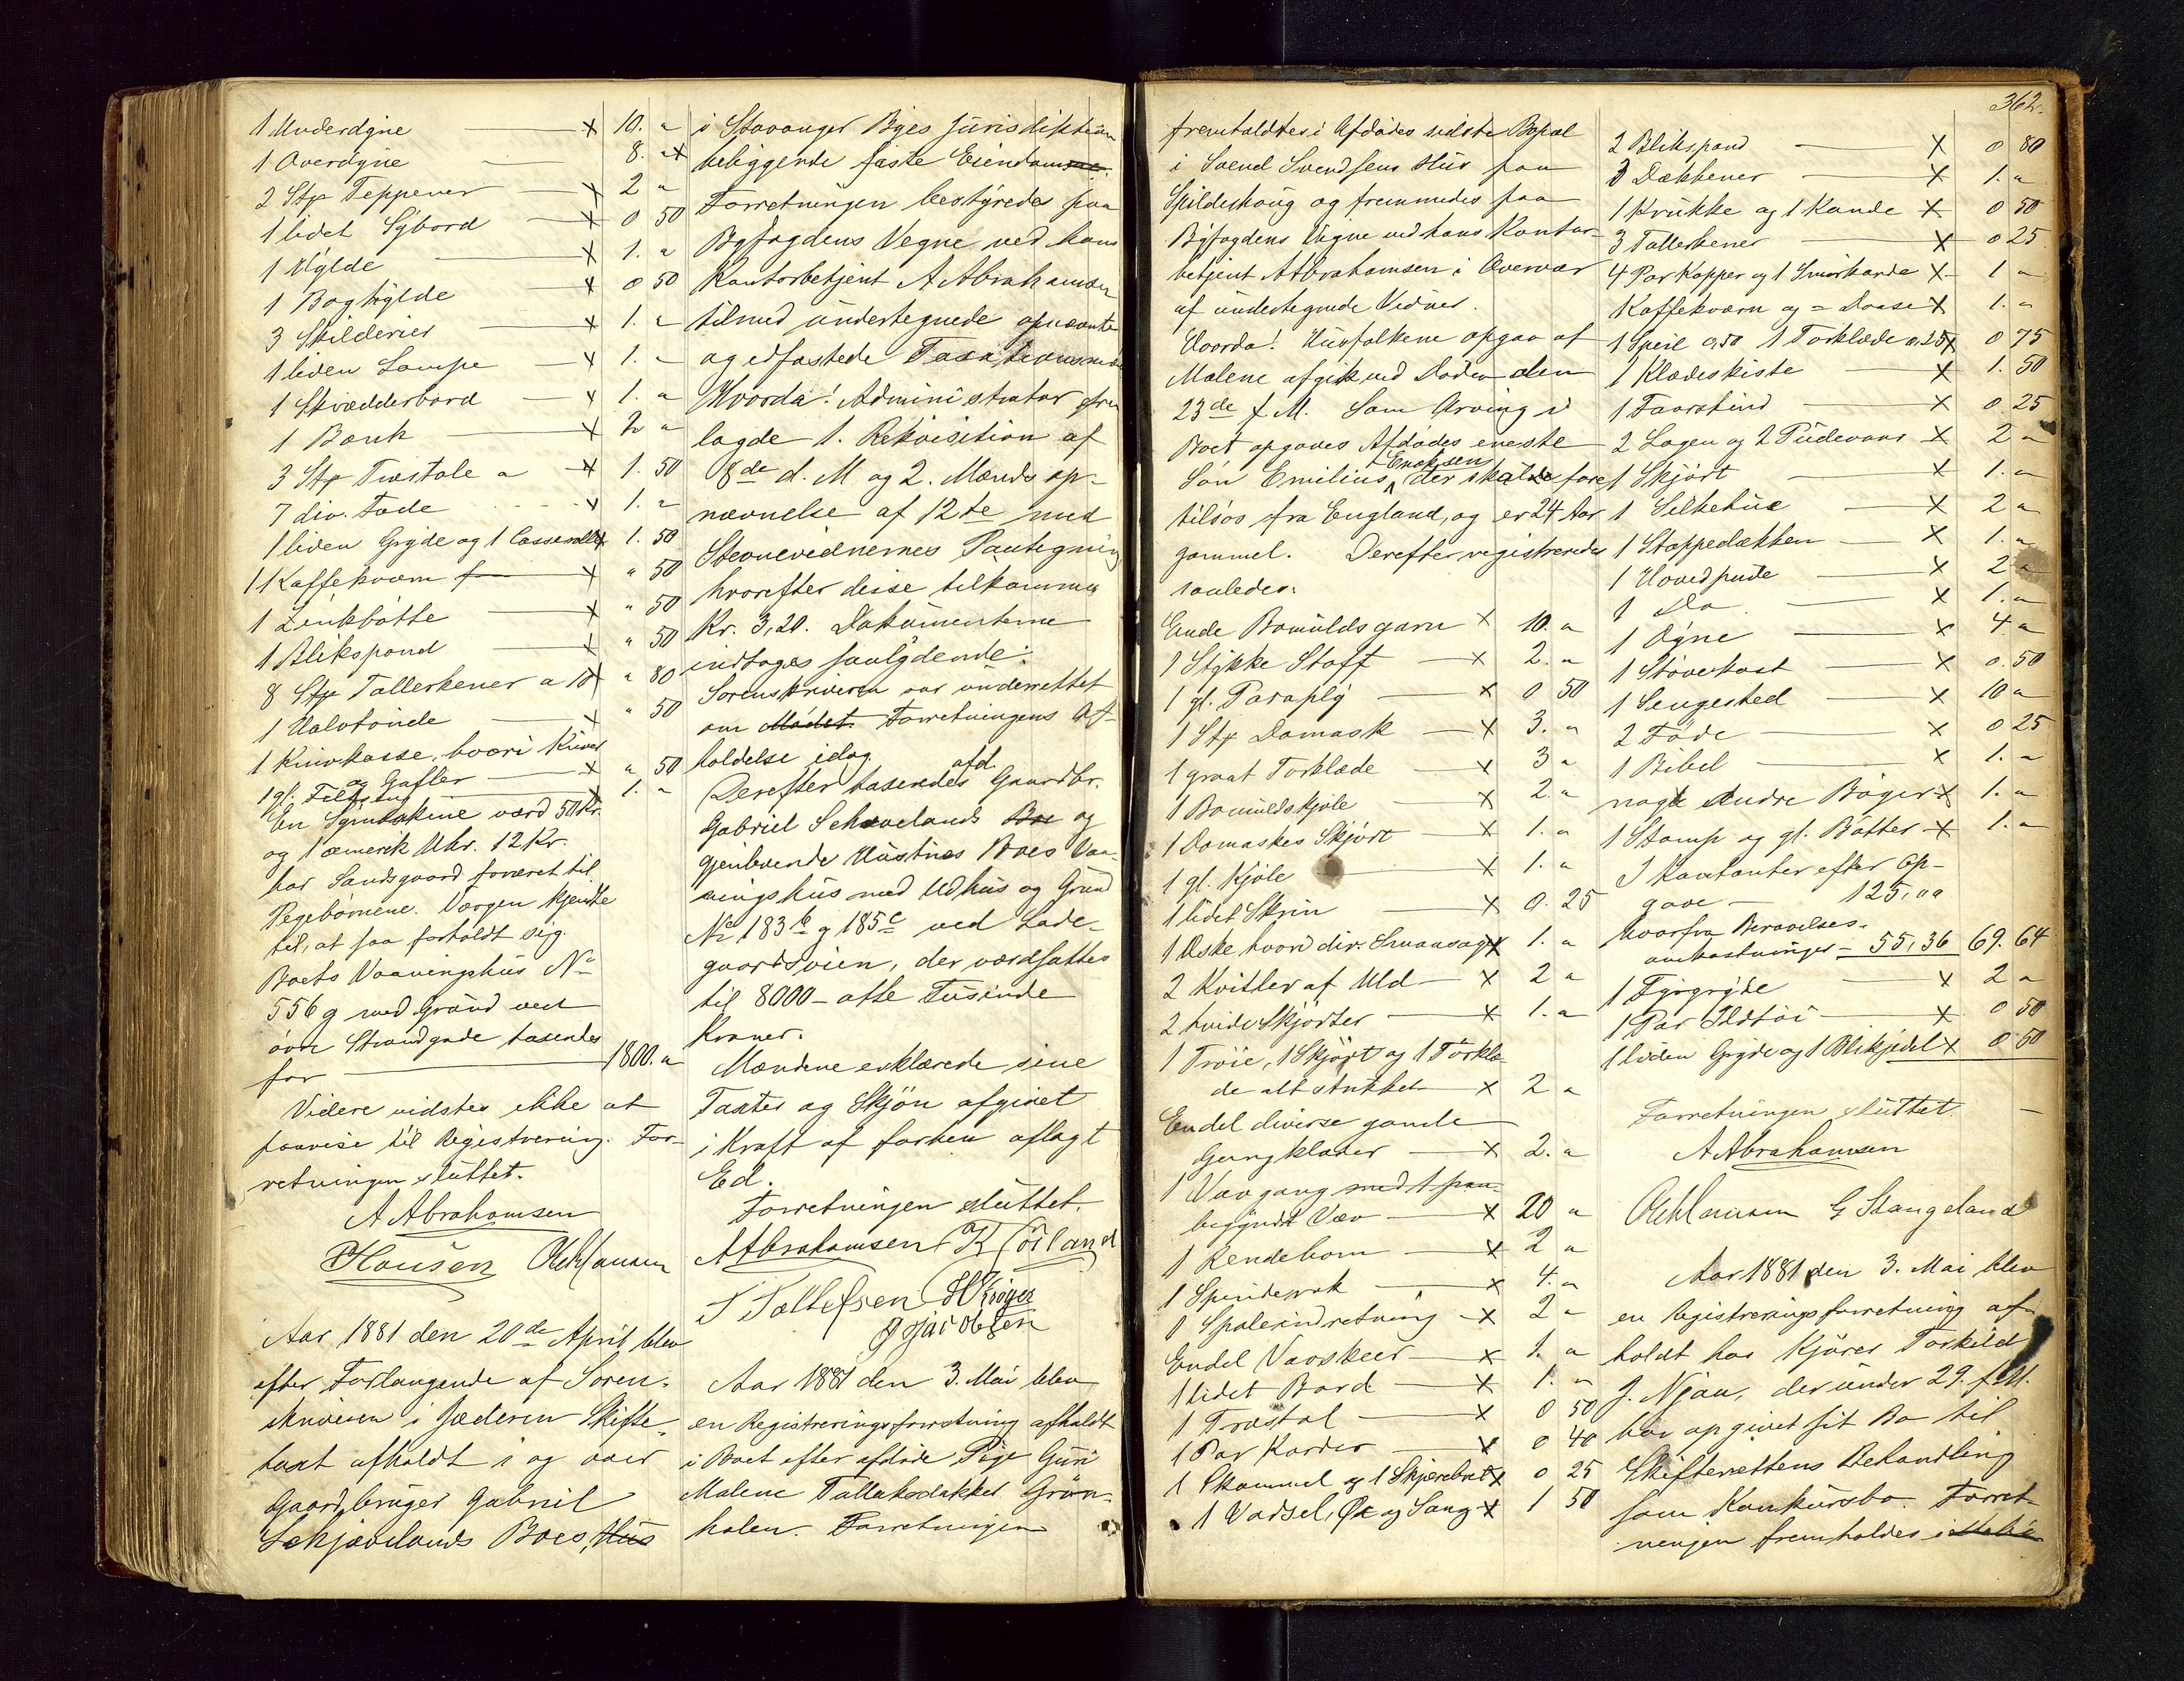 1 Underdyne x 10. "
1 Overdyne 8. " x
2 Stk Teppener x 2 "
1 lidet Sybord x 0 50
1 Hylde x 1. "
1 Boghylde x 0 50
3 Skilderier x 1. "
1 liden Lampe x 1. "
1 Skrædderbord x 1. "
1 Bænk x 2 "
3 Stk Træstole a x 1. 50
7 div. Fade x 1. "
1 liden Gryde og 1 Casserolle x 1. 50
1 Kaffekværn x " 50
1 Zinkbøtte x " 50
1 Blikspand x " 50
8 Stk Tallerkener a 10 x " 80
1 Halvtønde x " 50
1 Knivkasse, hvori Knive
og Gafler x " 50
1 gl. x 1. "
En Symaskine værd 50 Kr.
og 1 amerik Uhr. 12 Kr.
har Sandsgaard foræret til
Pigebørnene. Værgen kjendte
til, at saa forholdt sig.
Boets Vaaningshus No
556 g med Grund ved
øvre Strandgade taxeredes
for 1800. "
Videre vidstes ikke at
paavise til Registrering. For-
retningen sluttet.
A Abrahamsen
Hansen
Aar 1881 den 20de April blev
efter Forlangende af Soren-
skriveren i Jæderen Skifte-
taxt afholdt i og over
Gaardbruger Gabriel
Skjævelands Boes, Hus
i Stavanger Byes Jurisdiktion
beliggende faste Eiendomme.
Forretningen bestyredes paa
Byfogdens Vegne ved hans
Kontorbetjent A Abrahamsen
tilmed undertegnede opnævnte
og edfæstede Taxationsmænd
Hvorda! Administrator frem
lagde 1. Rekvisition af
8de d. M og 2. Mænds op-
nævnelse af 12te med
Stevnevidnernes Paategning
hvorefter disse tilkommer
Kr. 3,20. Dokumenterne
indtages saalydende:
Sorenskriveren var underrettet
om Mødet Forretningens Af-
holdelse idag.
Derefter taxeredes afd. Gaardbr.
Gabriel Schævelands Boe og
gjenlevende Hustrues Boes Vaa-
ningshus med Udhus og Grund
No 183 b og 185 c ved Lade-
gaardsveien, der værdsattes
til 8000 - otte Tusinde
Kroner.
Mændene erklærede sine
Taxter og Skjøn afgivet
i Kraft af forhen aflagt
Ed.
Forretningen sluttet.
A Abrahamsen K Törland
T Tollefsen H Krøger
G Jacobsen
Aar 1881 den 3. Mai blev
en Registreringsforretning afholdt
i Boet efter afdøde Pige Guri
Malene Tollaksdatter Grøn-
holen. Forretningen
362.
fremholdtes i Afdødes sidste Bopæl
i Svend Svendsens Hus paa
Spilderhaug og fremmedes paa
Byfogdens Vegne ved hans Kontor-
betjent A Abrahamsen i Overvær
af undertegnede Vidner.
Hvorda! Husfolkene opgav at
Malene afgik ved Døden den
23de f. M. Som Arving i
Boet opgaves Afdødes eneste
Søn Emilius Enoksen, der skal være
tilsøs fra England, og er 24 Aar
gammel. Derefter registreredes
saaledes:
Ende Bomuldsgarn x 10. "
1 Stykke Stoff x 2. "
1 gl. Paraply x 0 50
1 Stk Damask x 3. "
1 graat Torklæde x 3 "
1 Bomuldskjole x 2. "
1 Damaskes Skjørt x 1. "
1 gl. Kjole x 1. "
1 lidet Skrin x 0. 25
1 Æske hvori div. Smaasager x 1. "
2 Kvitler af Uld x 2 "
2 hvide Skjørter x 1. "
1 Trøie, 1 Skjørt og 1 Torklæ
de alt strikket x 2 "
Endel diverse gamle
Gangklæder x 2. "
1 Vævgang med 1 paa-
begyndt Væv x 20 "
1 Rendebom x 2 "
1 Spinderok x 4. "
1 Spoleindretning x 2 "
Endel Vævskeer x 1. "
1 lidet Bord x 1. "
1 Træstol x 0 50
1 Par Karder x 0 40
1 Skammel og 1 Skjærebræt x 0 25
1 Vadsel, Øx og Saug x 1 50
2 Blikspand x 0 80
3 Dækkener x 1. "
1 Krukke og 1 Kande x 0 50
3 Tallerkener x 0 25
4 Par Kopper og 1 Smørkande x 1 "
Kaffekværn og = Daase x 1. "
1 Speil 0,50 1 Torklæde 0,25 x 0 75
1 Klædeskiste x 1. 50
1 Faarskind x 0 25
2 Lagen og 2 Pudevaar x 2 "
1 Skjørt x 1. "
1 Silkehue x 2 "
1 Stoppedækken x 1. "
1 Hovedpude x 2 "
1 Do x 1. "
1 Dyne x 4 "
1 Støvekost x 0. 50
1 Sengested x 10 "
2 Fade x 0 25
1 Bibel x 1. "
nogle Andre Bøger x 1. "
1 Stamp og gl. Bøtter x 1. "
I Kontanter efter Op-
gave - 125,00
hvorfra Begravelses-
omkostninger = 55,36 69. 64
1 Fyrgryde x 2 "
1 Par Ildtøi x 0 50
1 liden Gryde og 1 Blikkjedel x 0 50
Forretningen sluttet
A Abrahamsen
G Stangeland
Aar 1881 den 3. Mai blev
en Registreringsforretning af-
holdt hos Kjører Torkild
J. Njaa, der under 29. f. M.
har opgivet sit Bo til
Skifterettens Behandling
som Konkursbo. Forret-
ningen fremholdes i